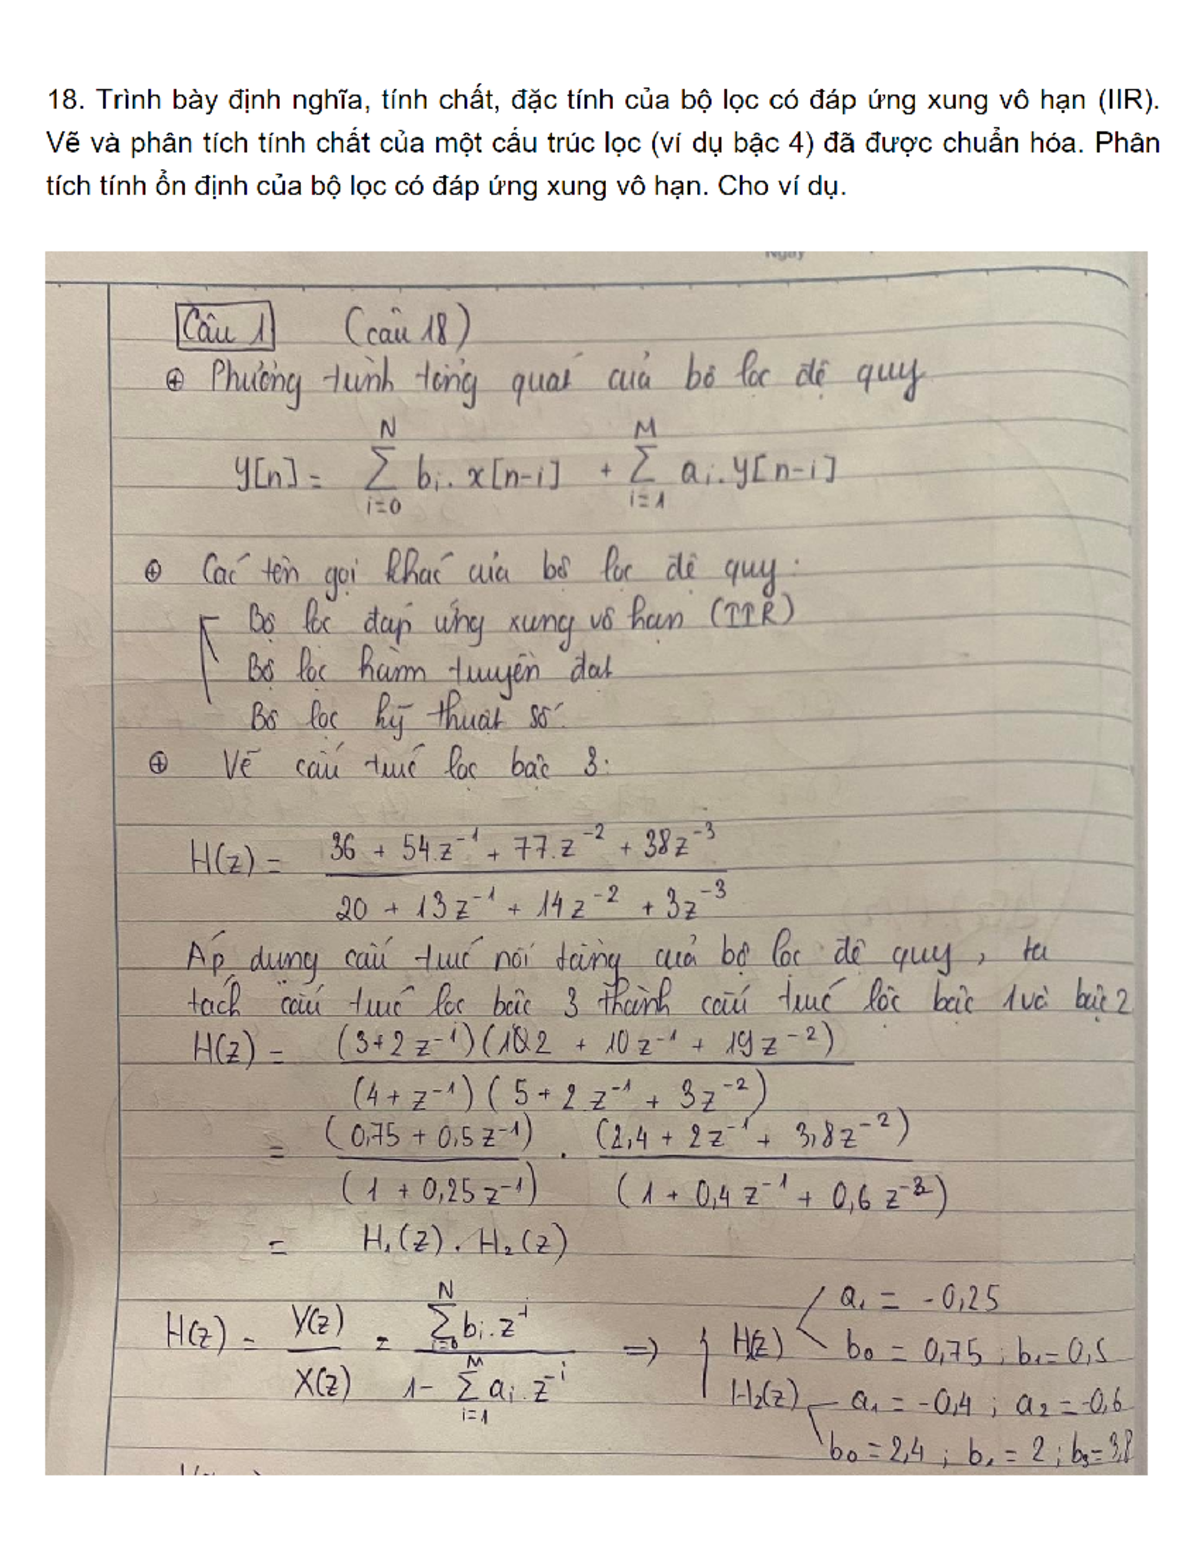 18. Trình bày định nghĩa, tính chất, đặc tính của bộ lọc có đáp ứng xung vô hạn (IIR).
Vẽ và phân tích tính chất của một cấu trúc lọc (ví dụ bậc 4) đã được chuẩn hóa. Phân
tích tính ổn định của bộ lọc có đáp ứng xung vô hạn. Cho ví dụ.
Ngày
Câu 1 (câu 18)
⊕ Phương trình tổng quát của bộ lọc đệ quy
y[n] = Σ_{i=0}^{N} b_i. x[n-i] + Σ_{i=1}^{M} a_i. y[n-i]
⊕ Các tên gọi khác của bộ lọc đệ quy:
Bộ lọc đáp ứng xung vô hạn (IIR)
Bộ lọc hàm truyền đạt
Bộ lọc kỹ thuật số
⊕ Vẽ cấu trúc lọc bậc 3:
H(z) = (36 + 54.z⁻¹ + 77.z⁻² + 38z⁻³) / (20 + 13z⁻¹ + 14z⁻² + 3z⁻³)
Áp dụng cấu trúc nối tầng của bộ lọc đệ quy, ta
tách cấu trúc lọc bậc 3 thành cấu trúc lọc bậc 1 và bậc 2
H(z) = (3+2z⁻¹)(12 + 10z⁻¹ + 19z⁻²) / (4+z⁻¹)(5+2z⁻¹ + 3z⁻²)
= (0,75 + 0,5z⁻¹) / (1 + 0,25z⁻¹) . (2,4 + 2z⁻¹ + 3,8z⁻²) / (1 + 0,4z⁻¹ + 0,6z⁻²)
= H₁(z). H₂(z)
H(z) = Y(z) / X(z) = Σ_{i=0}^{N} b_i.z⁻ⁱ / 1 - Σ_{i=1}^{M} a_i.z⁻ⁱ ⇒ H(z) a₁ = -0,25
b₀ = 0,75 ; b₁ = 0,5
H₂(z) a₁ = -0,4 ; a₂ = -0,6
b₀ = 2,4 ; b₁ = 2 ; b₂ = 3,8